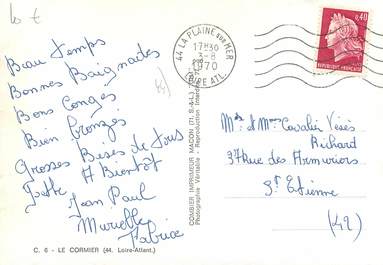 10 €
Beau temps
Bonnes Baignades
Bons Congés
Bien Bronzés
Grosses Bises de tous
A Bientôt
Jean Paul
Murielle
Fabrice
C. 6 - LE CORMIER (44. Loire-Atlant.)
COMBIER IMPRIMEUR MACON (71. S.-&-L.)
Photographie Véritable - Reproduction
44 LA PLAINE sur MER
17H30
3-8
1970
LOIRE ATL.
0,40
REPUBLIQUE FRANCAISE
et Mme Cavalier
Richard
37 Rue des Armuriers
St Etienne
(42)